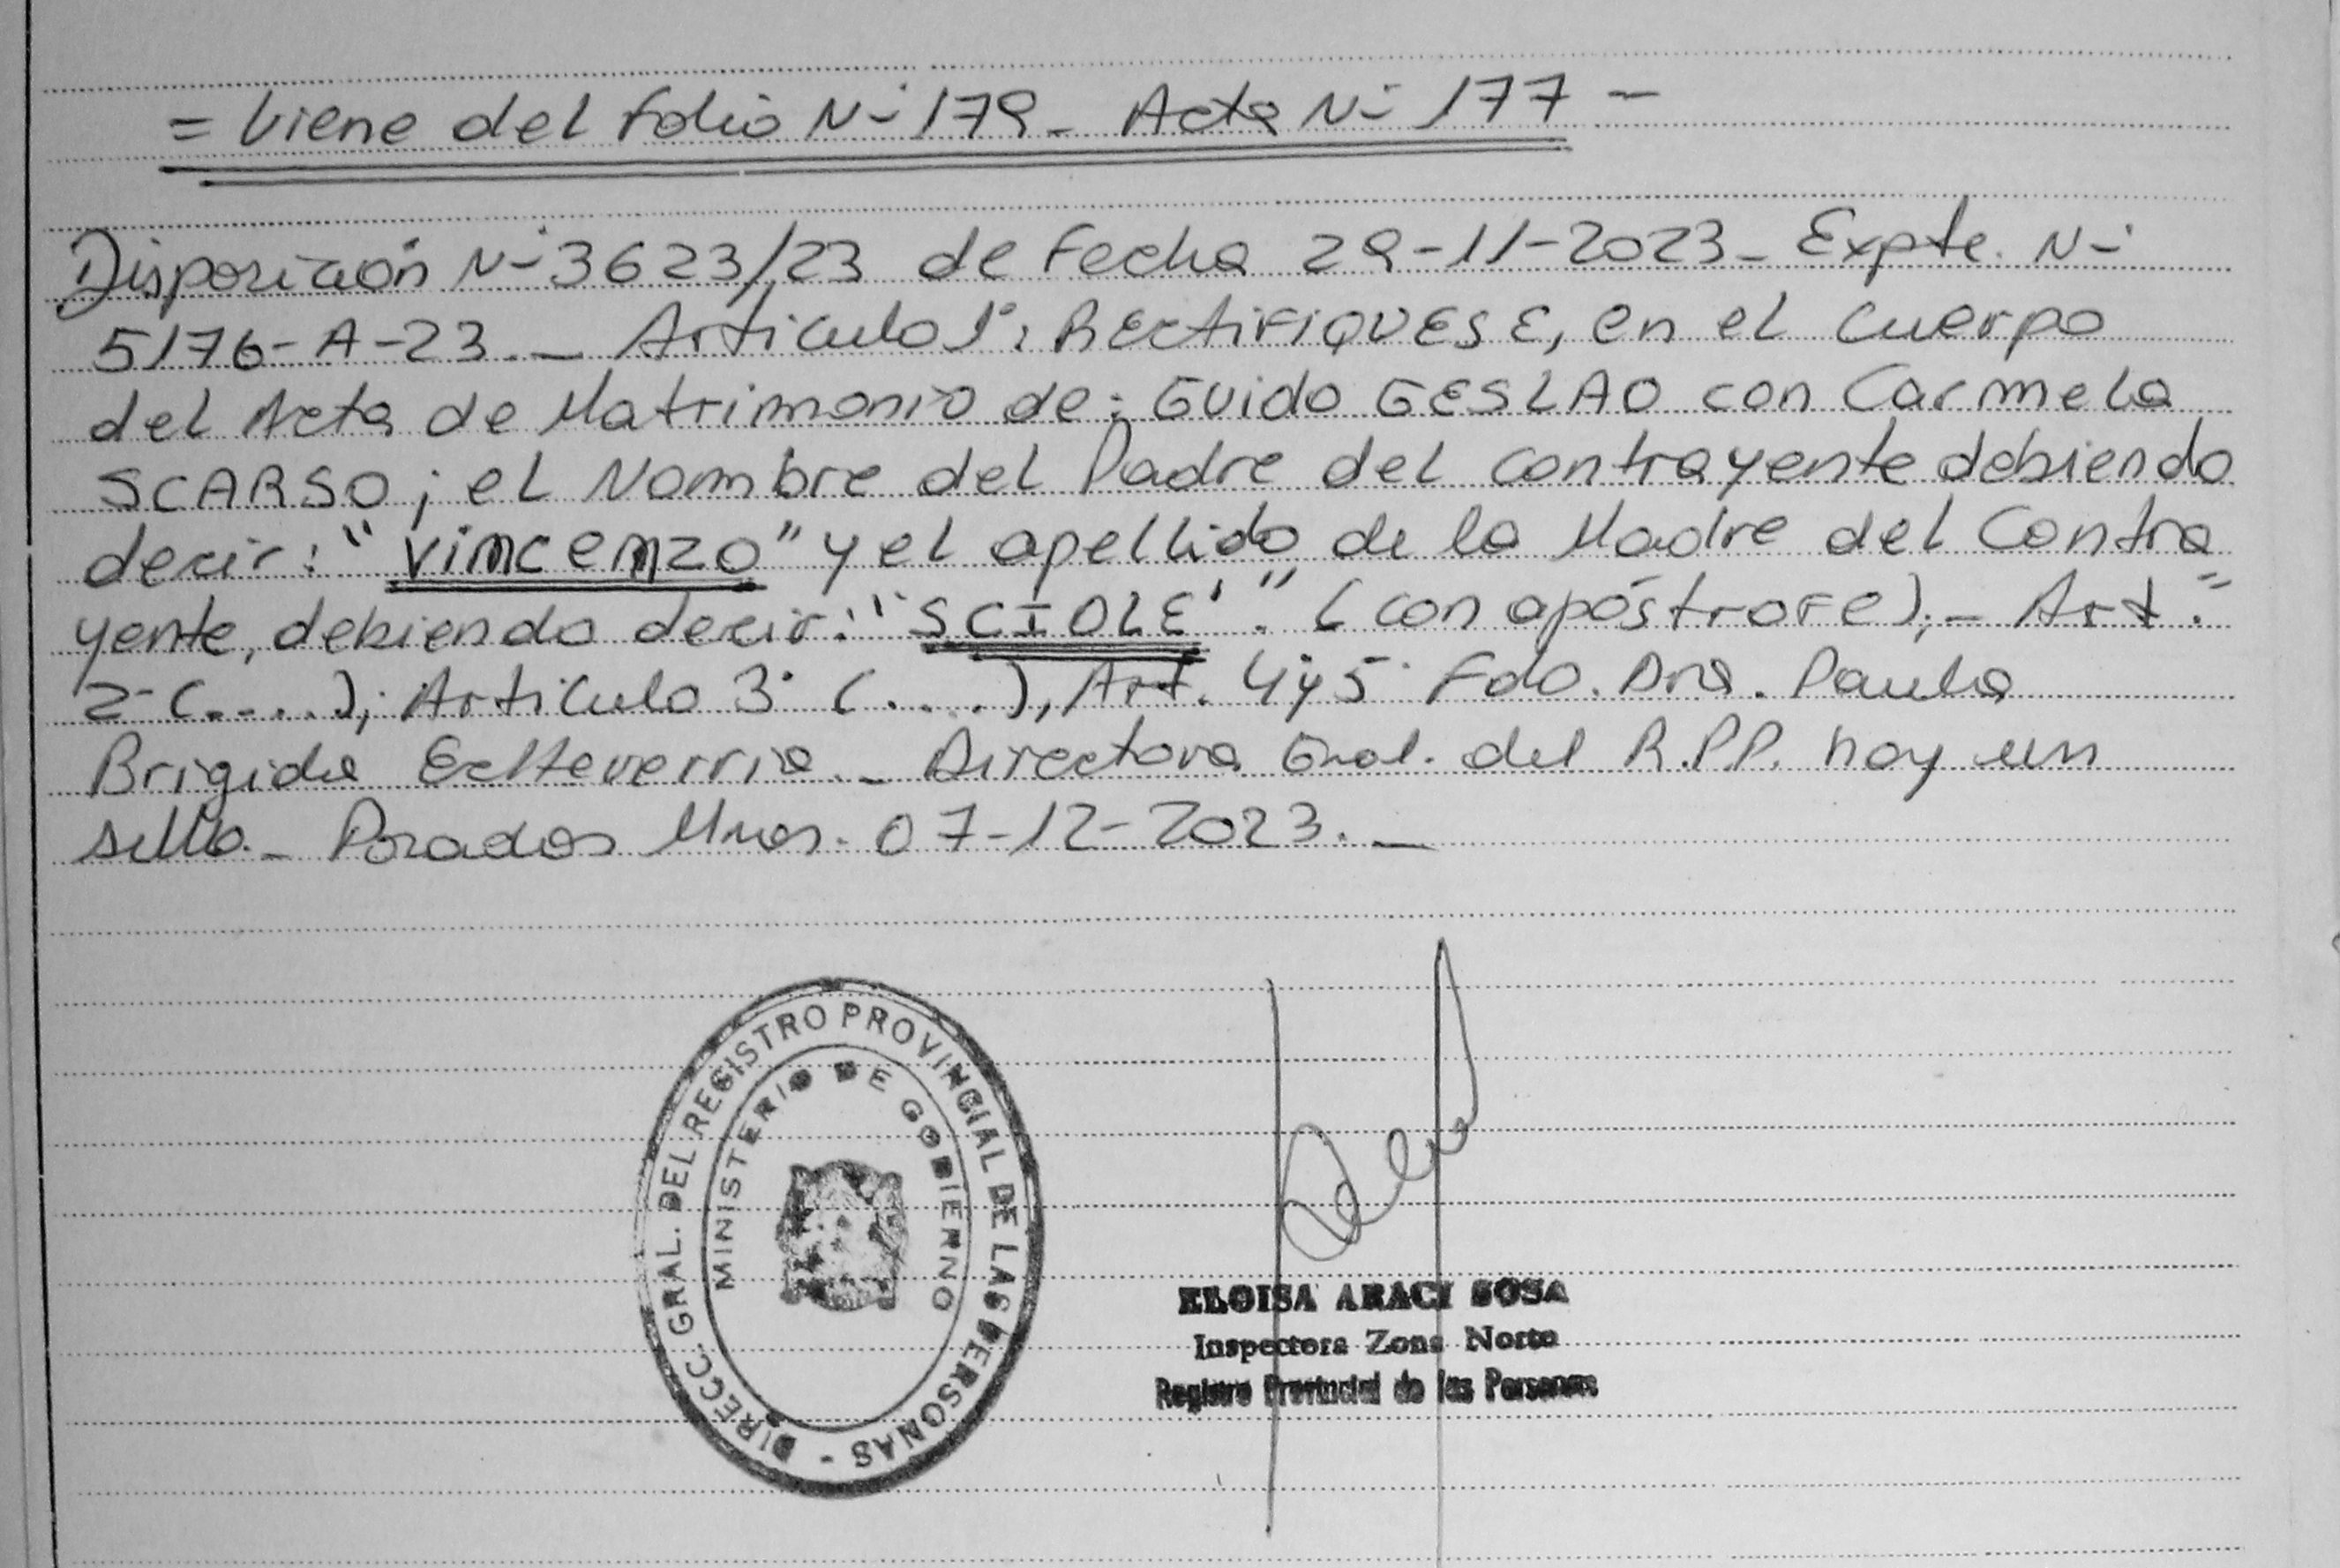 = Viene del folio N- 179 - Acta N- 177 -
Disposición N- 3623/23 de Fecha 29-11-2023 - Expte. N-
5176-A-23. - Articulo 1°: RECTIFIQUESE, en el Cuerpo
del Acta de Matrimonio de: Guido GESLAO con Carmela
SCARSO; el Nombre del Padre del contrayente debiendo
decir: "Vincenzo" y el apellido de la Madre del Contra
yente, debiendo decir: "SCIOLE'." (con apóstrofe);- Art.=
2- (....); Articulo 3° (....), Art. 4 y 5 Fdo. Dra. Paula
Brigida Echeverria. - Directora Gral. del R.P.P. hay un
sello. - Posadas Mnes. 07-12-2023. -
DIRECC. GRAL. DEL REGISTRO PROVINCIAL DE LAS PERSONAS -
MINISTERIO DE GOBIERNO
ELOISA ARACI SOSA
Inspectora Zona Norte
Registro Provincial de las Personas